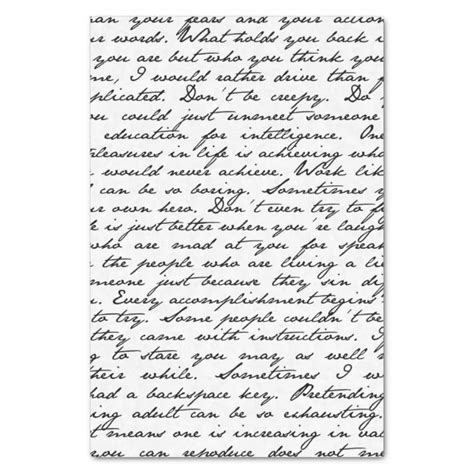 than your fears and your action
ur words. What holds you back i
you are but who you think you
me, I would rather drive than f
plicated. Don't be creepy. Do y
you could just unmeet someone
education for intelligence. One
pleasures in life is achieving wha
u would never achieve. Work lik
can be so boring. Sometimes y
ur own hero. Don't even try to f
e is just better when you're laugh
who are mad at you for speak
the people who are living a lie
omeone just because they sin dif
u. Every accomplishment begins
to try. Some people couldn't be
they came with instructions. I
g to stare you may as well
their while. Sometimes I w
had a backspace key. Pretending
ing adult can be so exhausting.
t means one is increasing in va
you can reproduce does not me